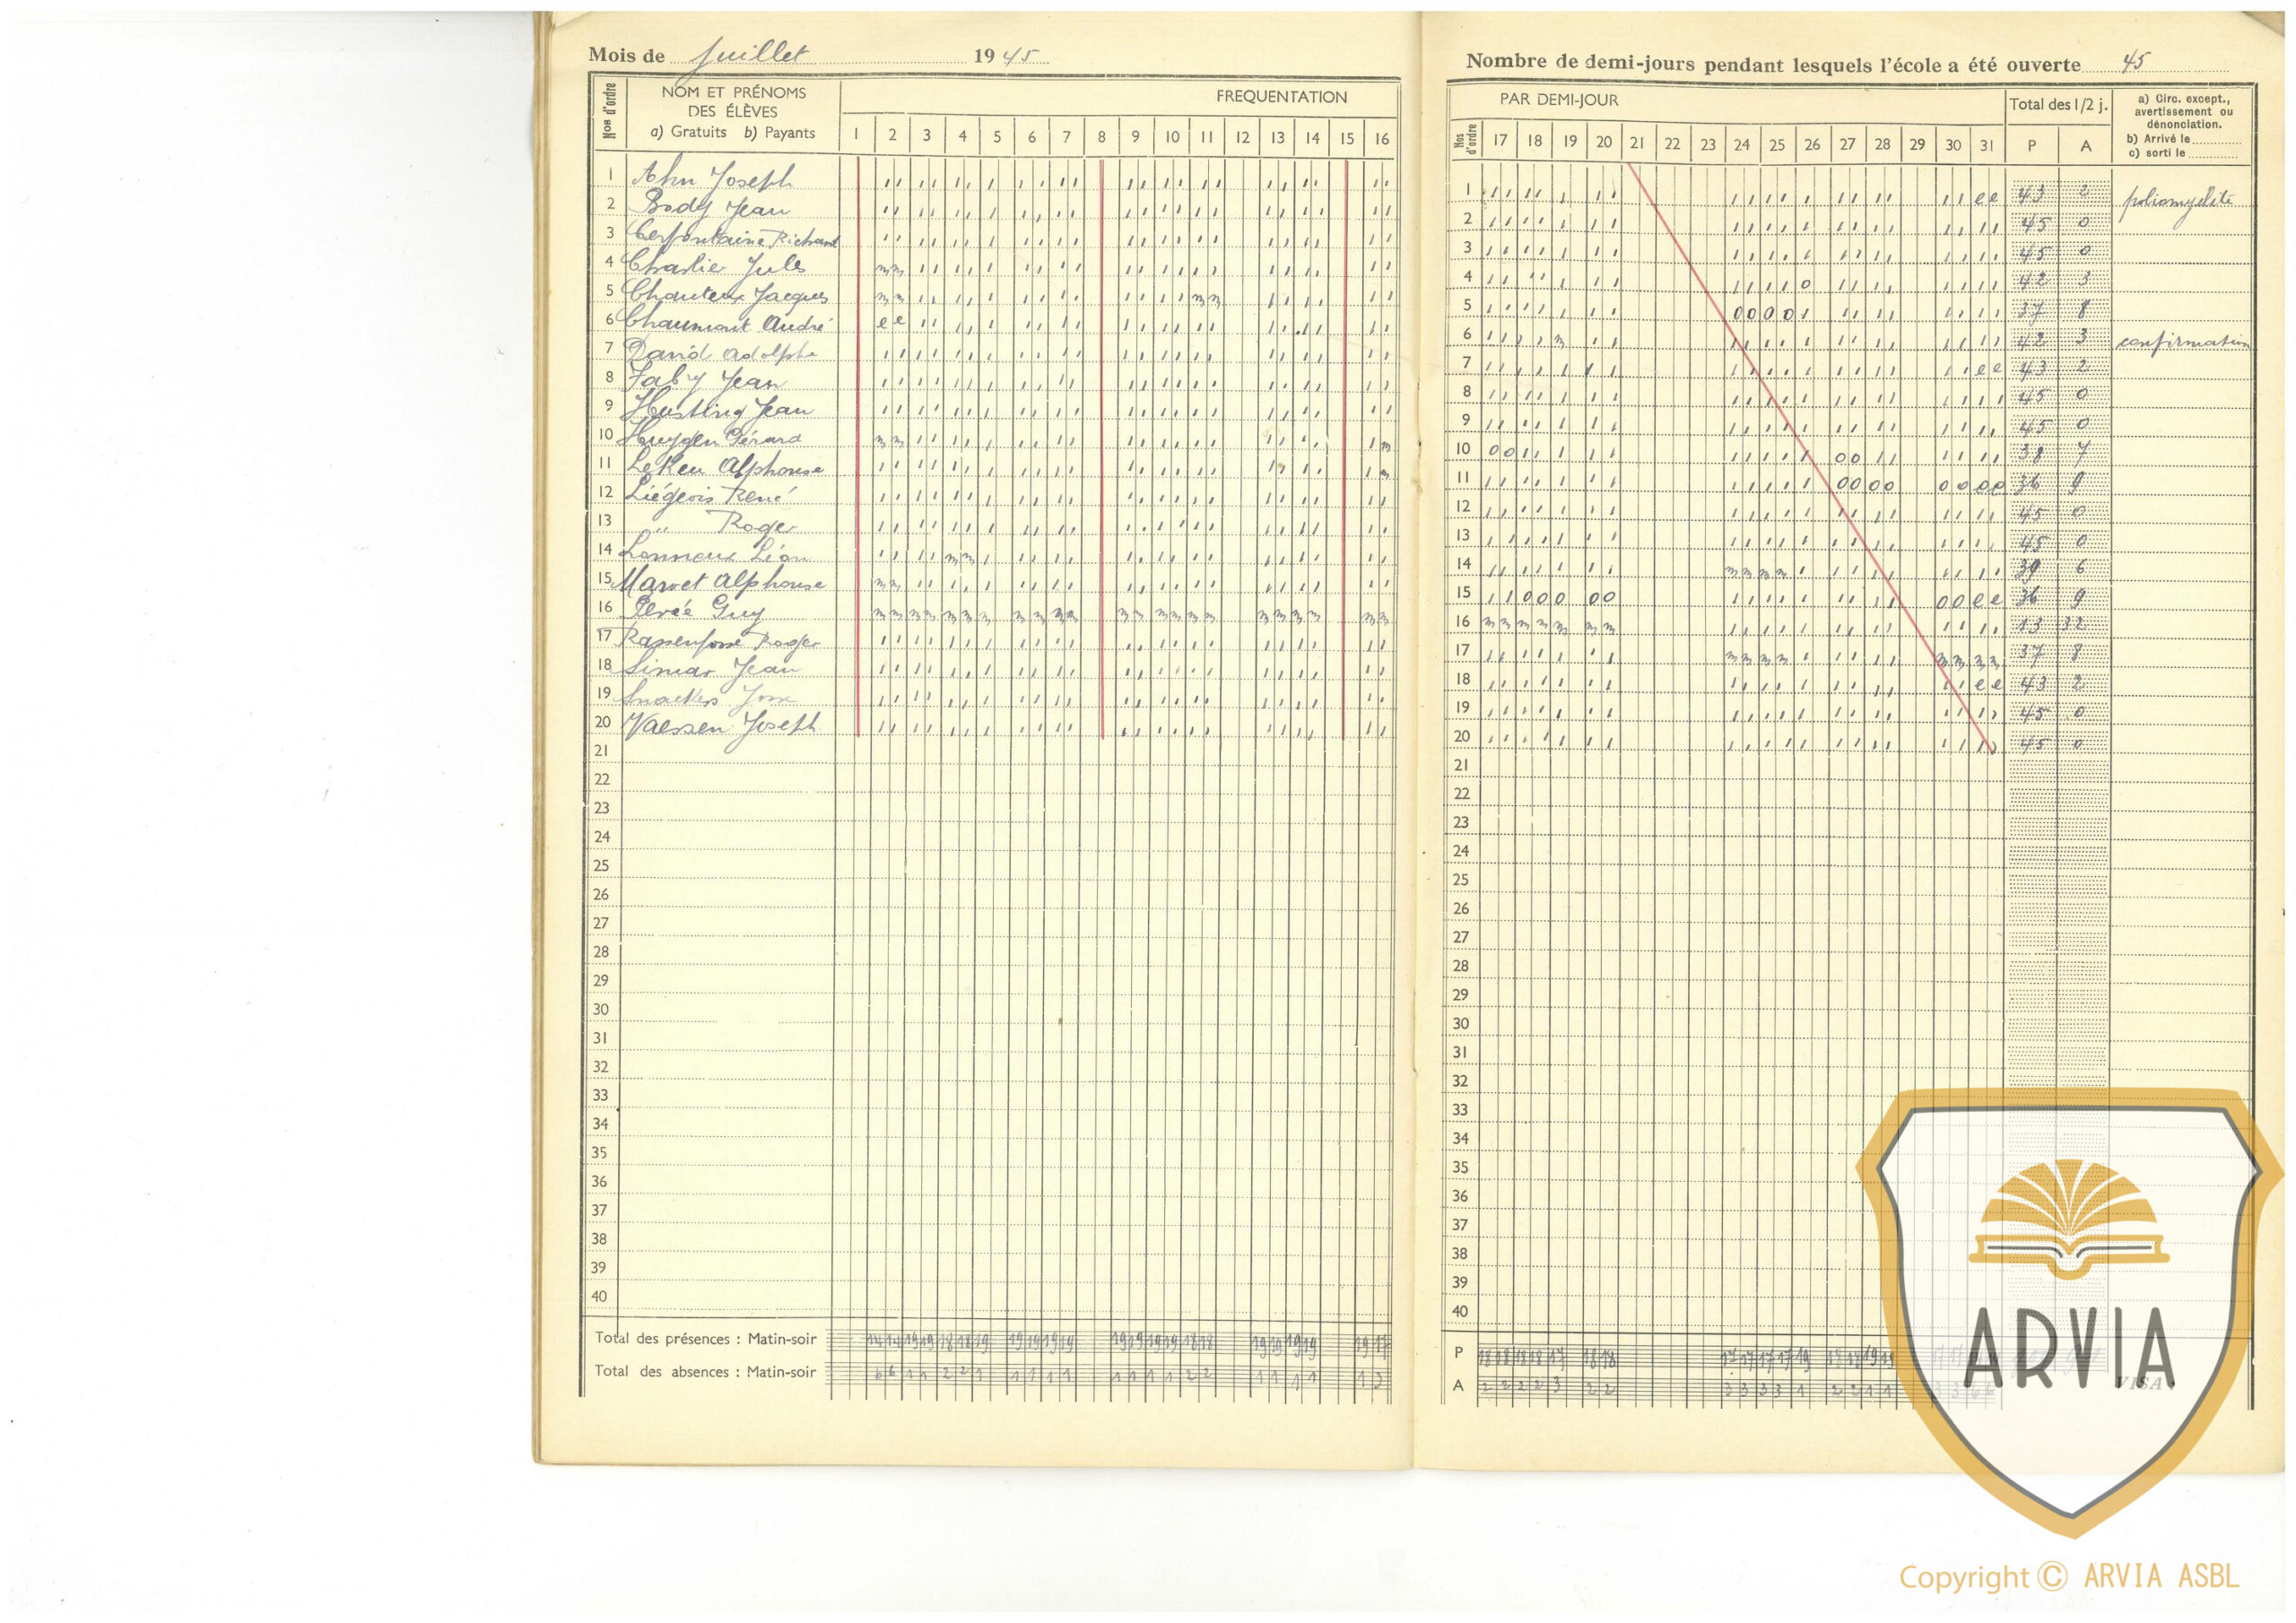 Mois de Juillet 1945
Nos d'ordre
NOM ET PRÉNOMS
DES ÉLÈVES
a) Gratuits b) Payants
FREQUENTATION
1 2 3 4 5 6 7 8 9 10 11 12 13 14 15 16
1 Ahn Joseph
2 Body Jean
3 Cerfontaine Richard
4 Charlier Jules
5 Chanteux Jacques
6 Chaumont André
7 David Adolphe
8 Faby Jean
9 Husting Jean
10 Huygen Gérard
11 Lekeu Alphonse
12 Liégeois René
13 " Roger
14 Lonneux Léon
15 Marvet Alphonse
16 Guy
17 Rassenfosse Roger
18 Simar Jean
19 Snackers
20 Vaessen Joseph
21
22
23
24
25
26
27
28
29
30
31
32
33
34
35
36
37
38
39
40
Total des présences : Matin-soir
Total des absences : Matin-soir
Nombre de demi-jours pendant lesquels l'école a été ouverte 45
PAR DEMI-JOUR
Total des 1/2 j.
a) Circ. except.,
avertissement ou
dénonciation.
b) Arrivé le
c) sorti le
Nos d'ordre
17 18 19 20 21 22 23 24 25 26 27 28 29 30 31 P A
1 e e 43 2 poliomyélite
2 45 0
3 45 0
4 0 42 3
5 0 0 0 0 37 8
6 m 42 3 confirmation
7 e e 43 2
8 45 0
9 45 0
10 0 0 0 0 38 7
11 0 0 0 0 0 0 0 0 36 9
12 45 0
13 45 0
14 m m m m 39 6
15 0 0 0 0 0 0 0 e e 36 9
16 m m m m m m m 13 32
17 m m m m m m m m 37 8
18 e e 43 2
19 45 0
20 45 0
21
22
23
24
25
26
27
28
29
30
31
32
33
34
35
36
37
38
39
40
P
A
VISA
ARVIA
Copyright © ARVIA ASBL